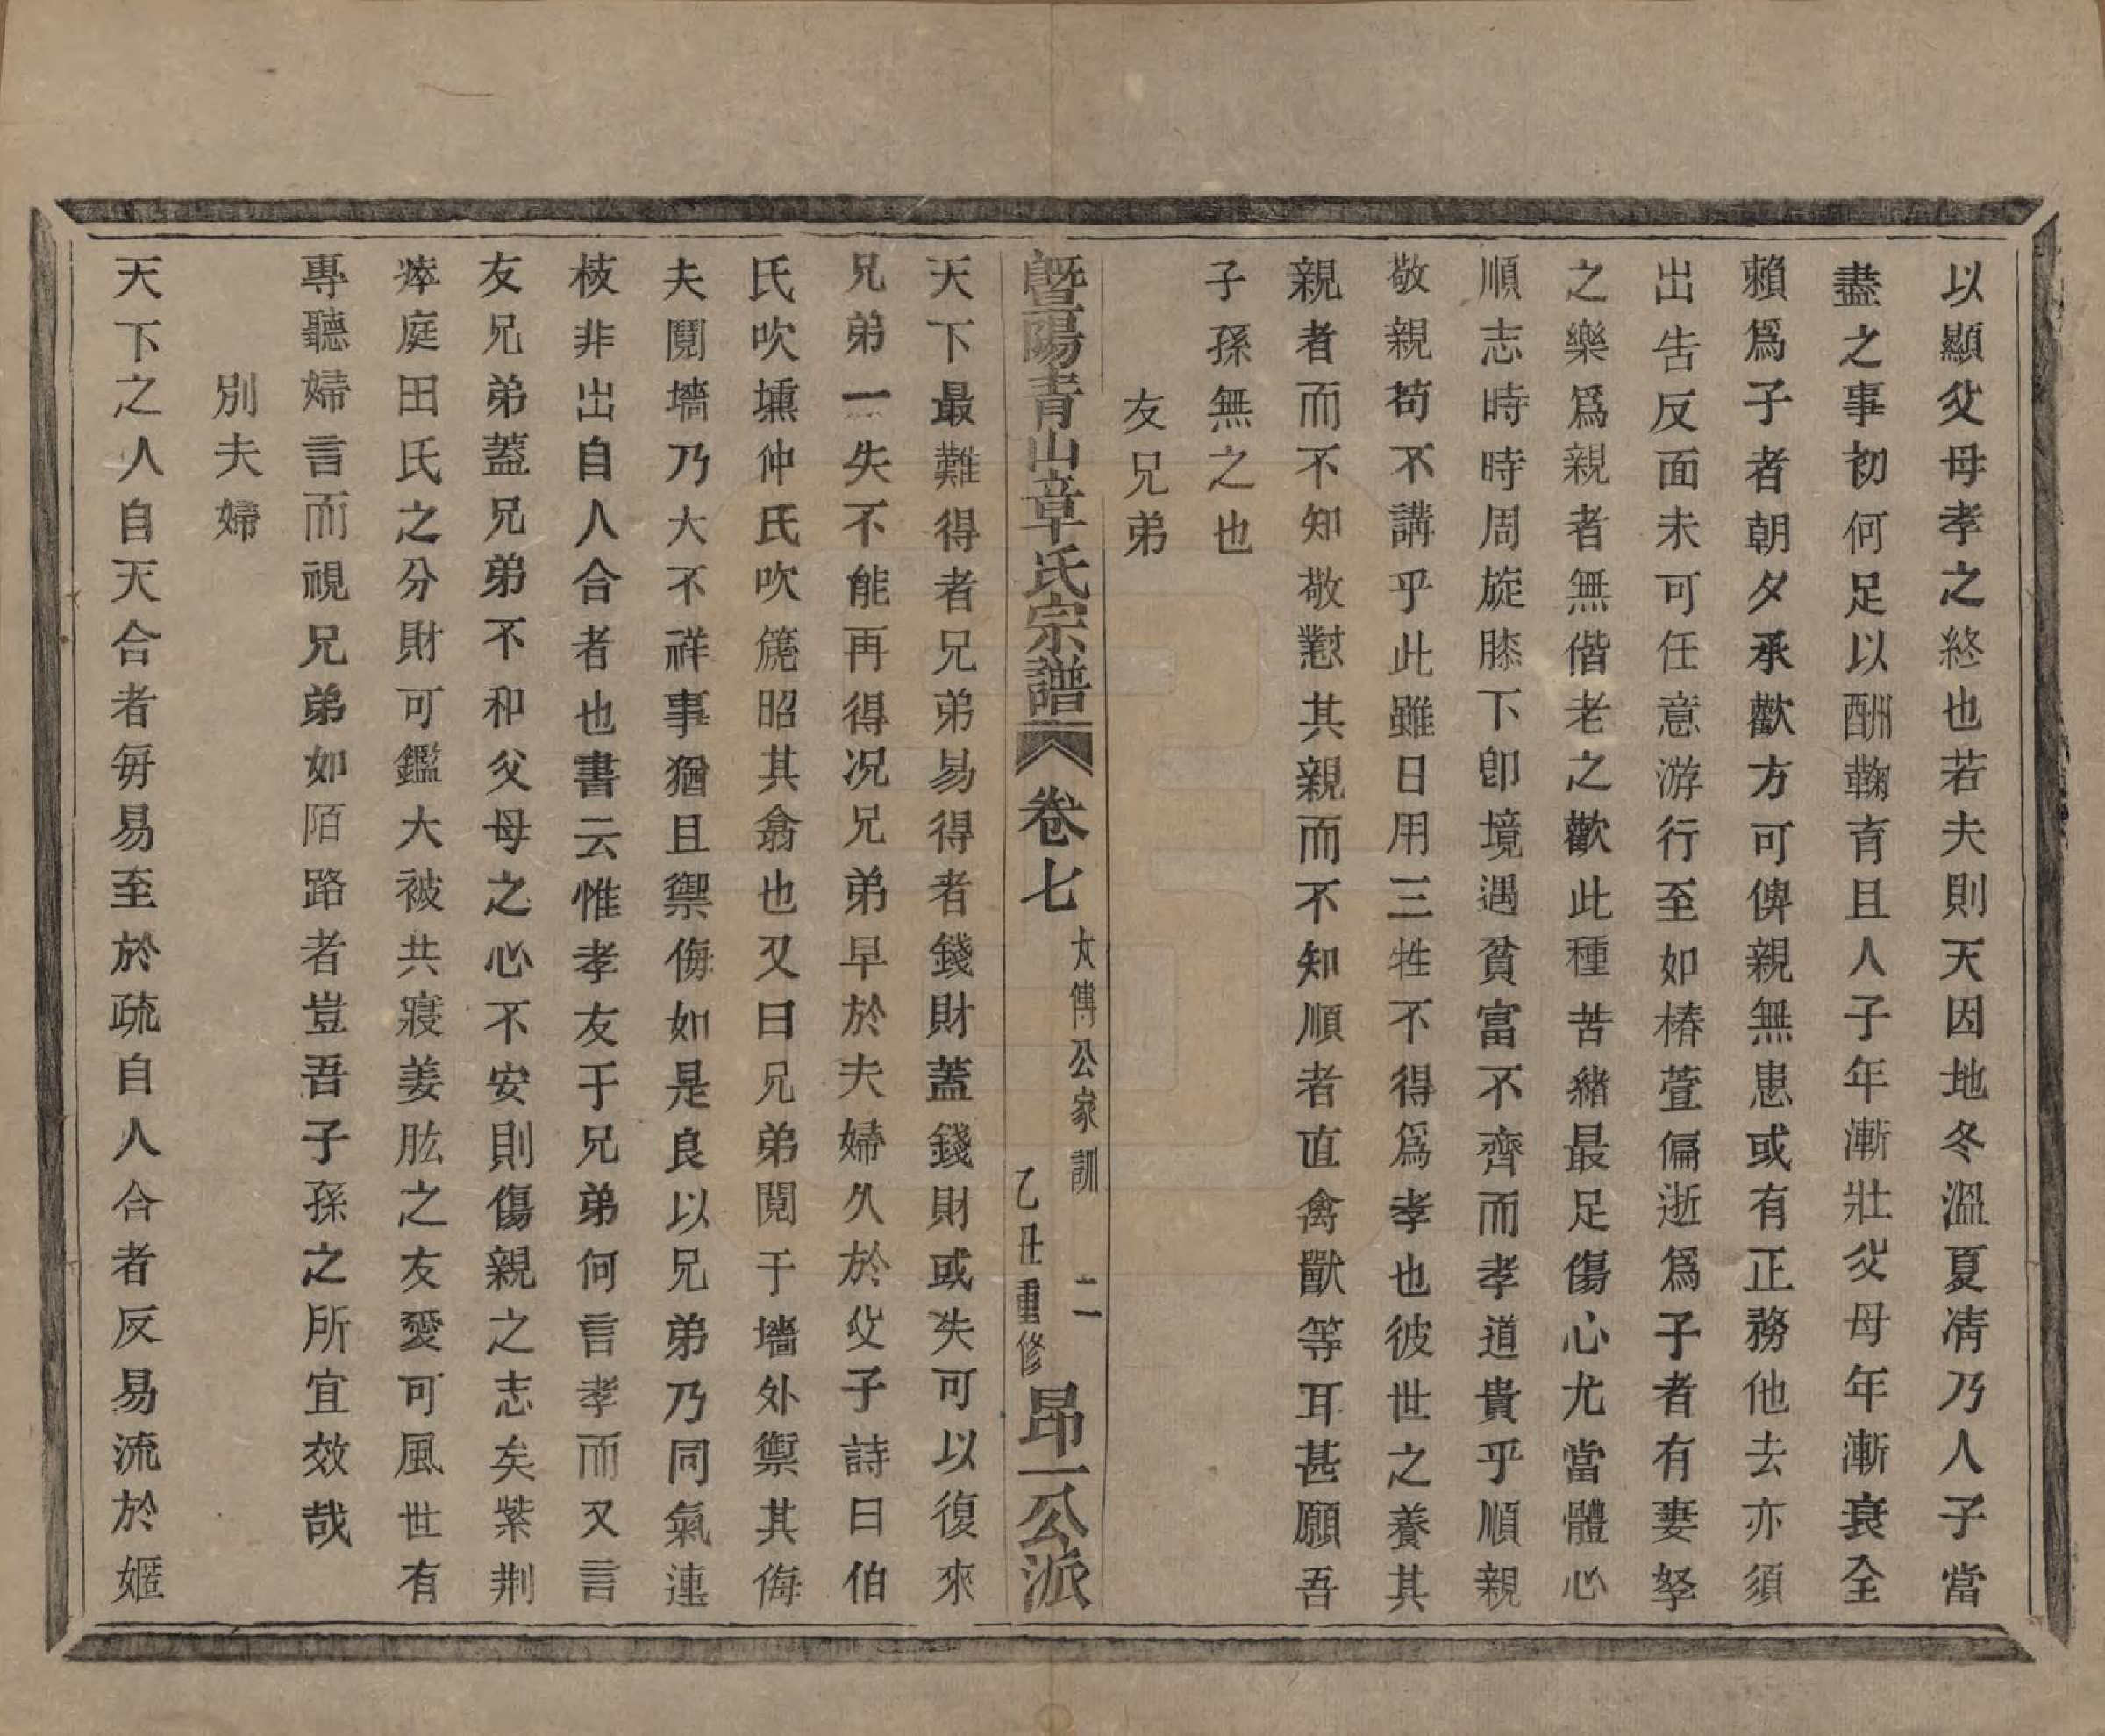 以顯父母孝之終也若夫則天因地冬溫夏凊乃人子當
盡之事初何足以酬鞠育且人子年漸壯父母年漸衰全
賴爲子者朝夕承歡方可俾親無患或有正務他去亦須
出告反面未可任意游行至如椿萱偏逝爲子者有妻孥
之樂爲親者無偕老之歡此種苦緒最足傷心尤當體心
順志時時周旋膝下卽境遇貧富不齊而孝道貴乎順親
敬親苟不講乎此雖日用三牲不得爲孝也彼世之養其
親者而不知敬懟其親而不知順者直禽獸等耳甚願吾
子孫無之也
友兄弟
暨陽青山章氏宗譜
卷七
太傅公家訓 二
乙丑重修
昂一公派
天下最難得者兄弟易得者錢財蓋錢財或失可以復來
兄弟一失不能再得況兄弟早於夫婦久於父子詩曰伯
氏吹壎仲氏吹篪昭其翕也又曰兄弟鬩于墻外禦其侮
夫鬩墻乃大不祥事猶且禦侮如是良以兄弟乃同氣連
枝非出自人合者也書云惟孝友于兄弟何言孝而又言
友兄弟蓋兄弟不和父母之心不安則傷親之志矣紫荆
瘁庭田氏之分財可鑑大被共寢姜肱之友愛可風世有
專聽婦言而視兄弟如陌路者豈吾子孫之所宜效哉
別夫婦
天下之人自天合者每易至於疏自人合者反易流於嫗